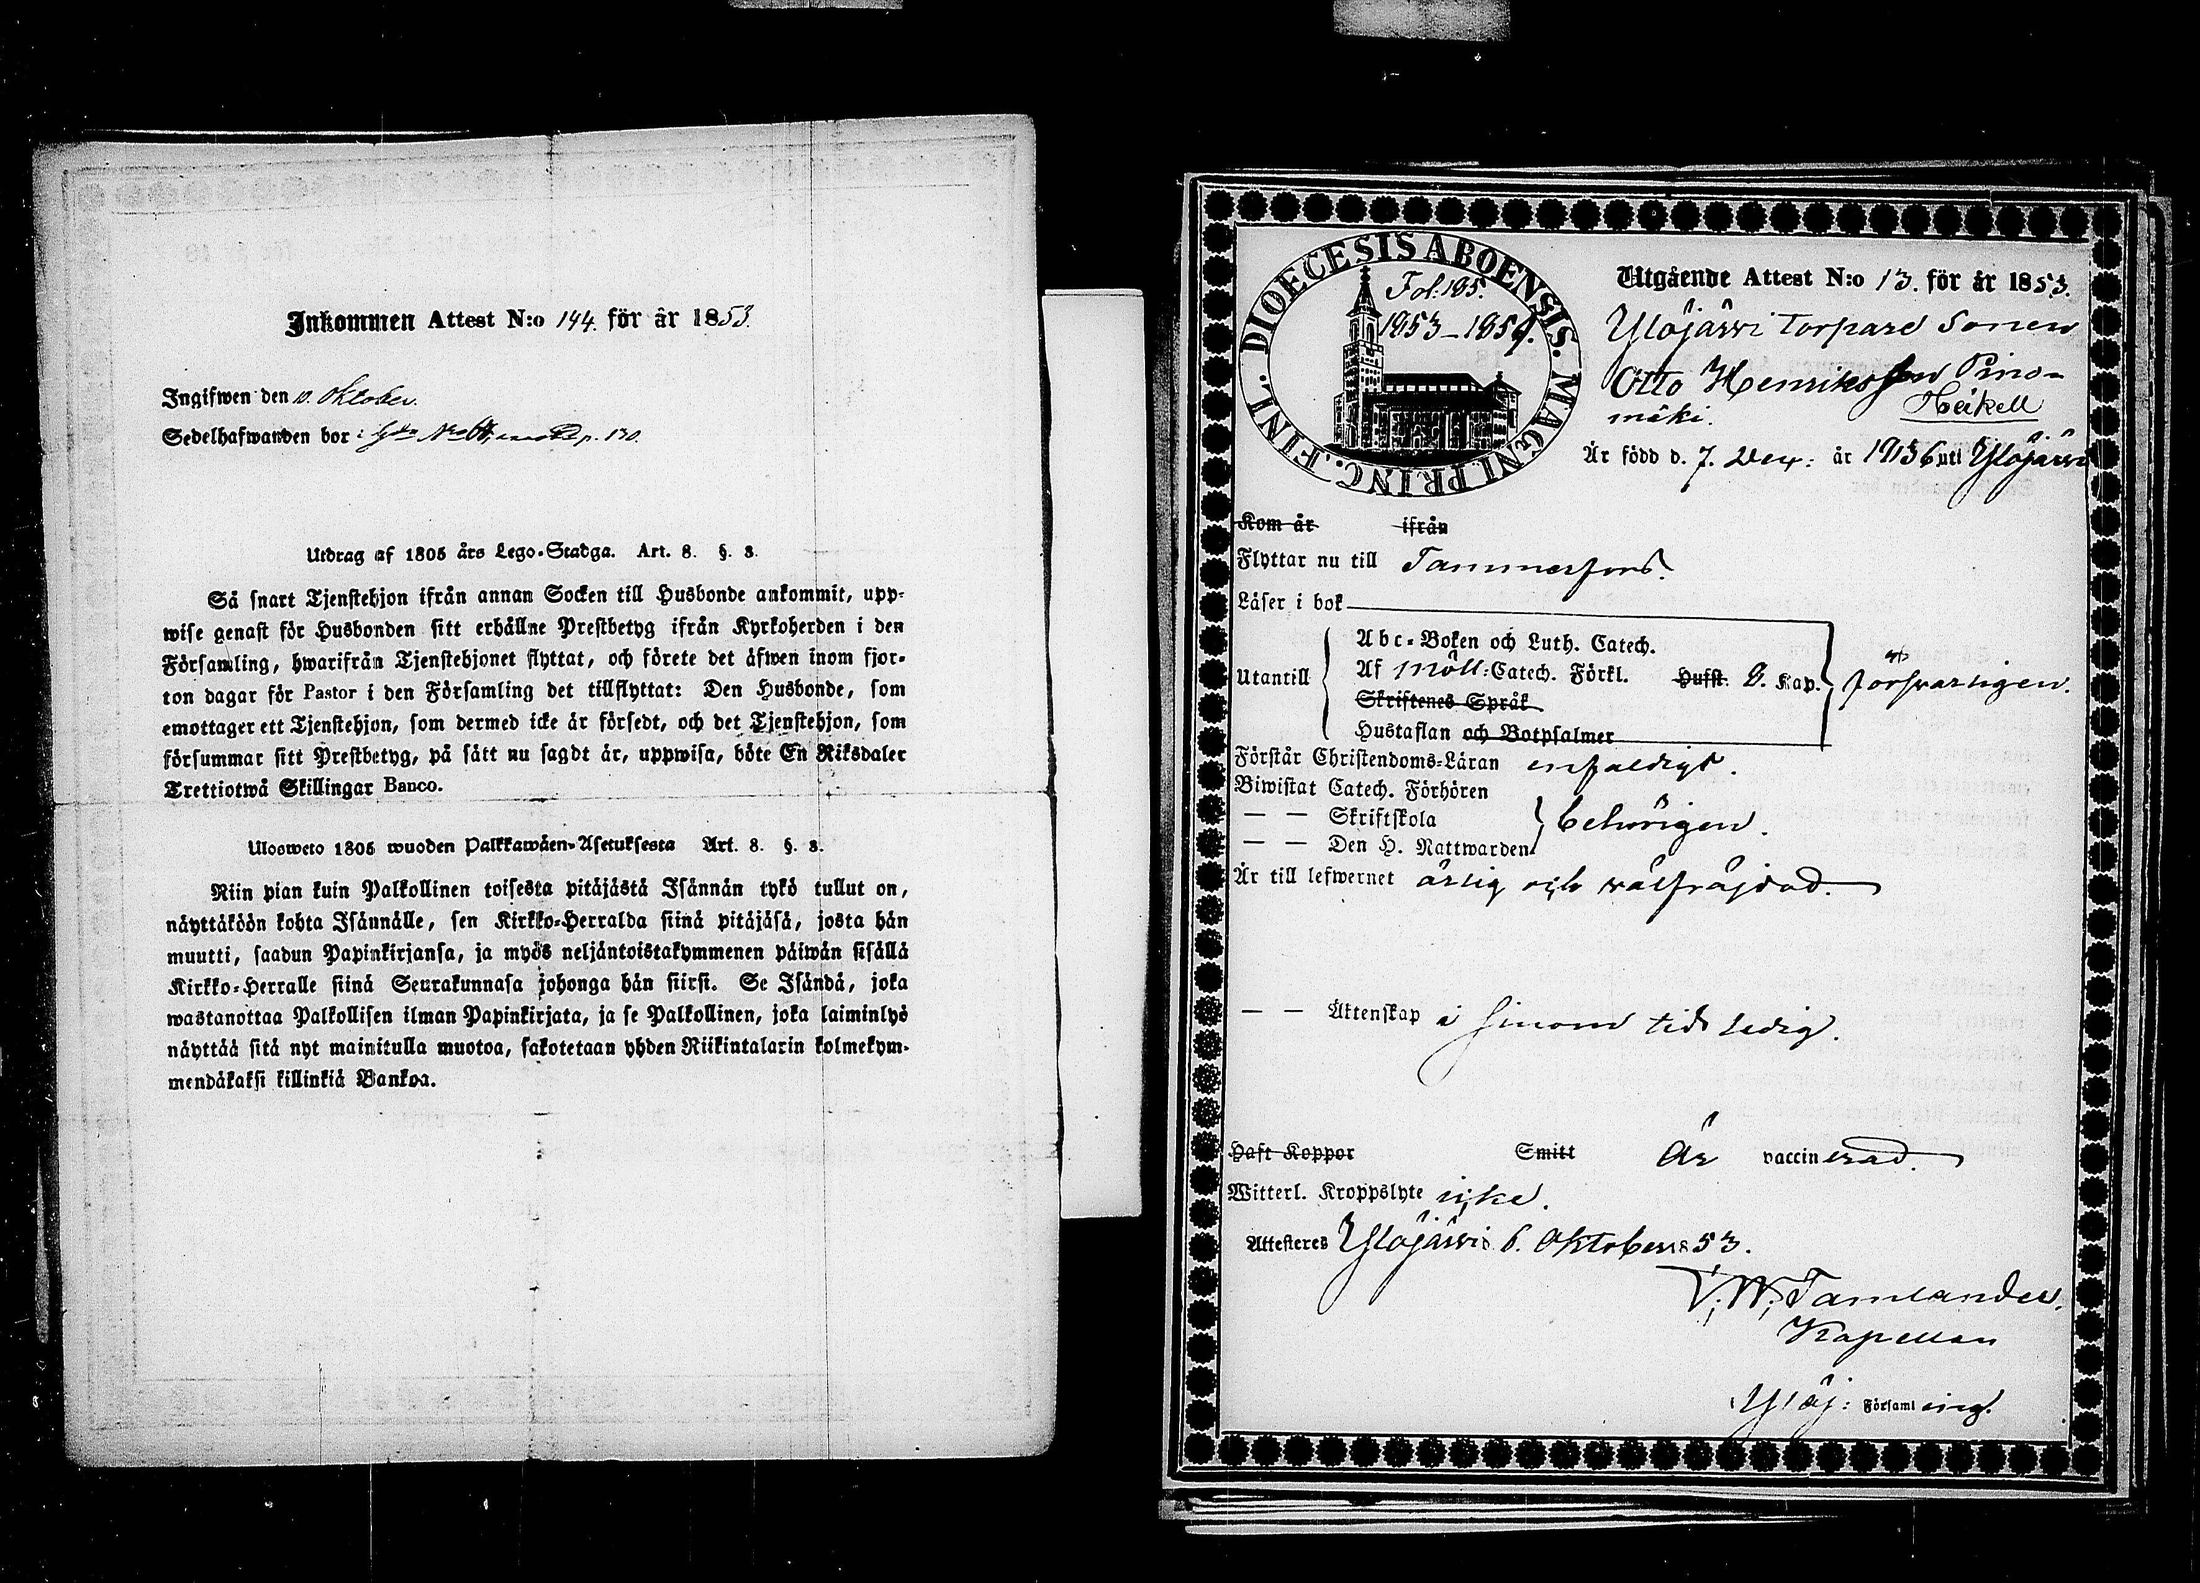 Inkommen Attest N:o 144. för år 1853.
Ingifwen den 10. Oktober.
Sedelhafwanden bor i p. 130.
Utdrag af 1805 års Lego-Stadga. Art. 8. §. 3.
Så snart Tjenstehjon ifrån annan Socken till Husbonde ankommit, upp-
wise genast för Husbonden sitt erhållne Prestbetyg ifrån Kyrkoherden i den
Församling, hwarifrån Tjenstehjonet flyttat, och förete det äfwen inom fjor-
ton dagar för Pastor i den Församling det tillflyttat: Den Husbonde, som
emottager ett Tjenstehjon, som dermed icke är försedt, och det Tjenstehjon, som
försummar sitt Prestbetyg, på sätt nu sagdt är, uppwisa, böte En Riksdaler
Trettiotwå Skillingar Banco.
Ulosweto 1805 wuoden Palkkawäen-Asetuksesta Art. 8. §. 3.
Niin pian kuin Palkollinen toisesta pitäjästä Isännän tykö tullut on,
näyttäköön kohta Isännälle, sen Kirkko-Herralda siinä pitäjäsä, josta hän
muutti, saadun Papinkirjansa, ja myös neljäntoistakymmenen päiwän sisällä
Kirkko-Herralle siinä Seurakunnasa johonga hän siirsi. Se Isändä, joka
wastanottaa Palkollisen ilman Papinkirjata, ja se Palkollinen, joka laiminlyö
näyttää sitä nyt mainitulla muotoa, sakotetaan yhden Riikintalarin kolmekym-
mendäkaksi killinkiä Bankoa.
DIOECESIS ABOENSIS. MAGNI. PRINC. FINL.
Fol: 185.
1853–1859.
Utgående Attest N:o 13. för år 1853.
Ylöjärwi Torpare Sonen
Otto Henriksson Pino-
mäki. Heikell
Är född d. 7. Dec: år 1836 uti Ylöjärwi
Kom år ifrån
Flyttar nu till Tammerfors.
Läser i bok
Abc-Boken och Luth. Catech.
Utantill Af Möll: Catech. Förkl. Hufst. 8. Kap. försvarligen.
Skriftenes Språk
Hustaflan och Botpsalmer
Förstår Christendoms-Läran enfaldigt.
Biwistat Catech. Förhören
— — Skriftskola behörigen.
— — Den H. Nattwarden
Är till lefwernet ärlig och wälfräjdad.
— — Äktenskap i sinom tid ledig.
Haft Koppor Smitt Är vaccinerad.
Witterl. Kroppslyte icke.
Attesteres Ylöjärwi d. 6. Oktober 1853.
V. W. Tamlander.
Kapellan
Ylöj: Församling.